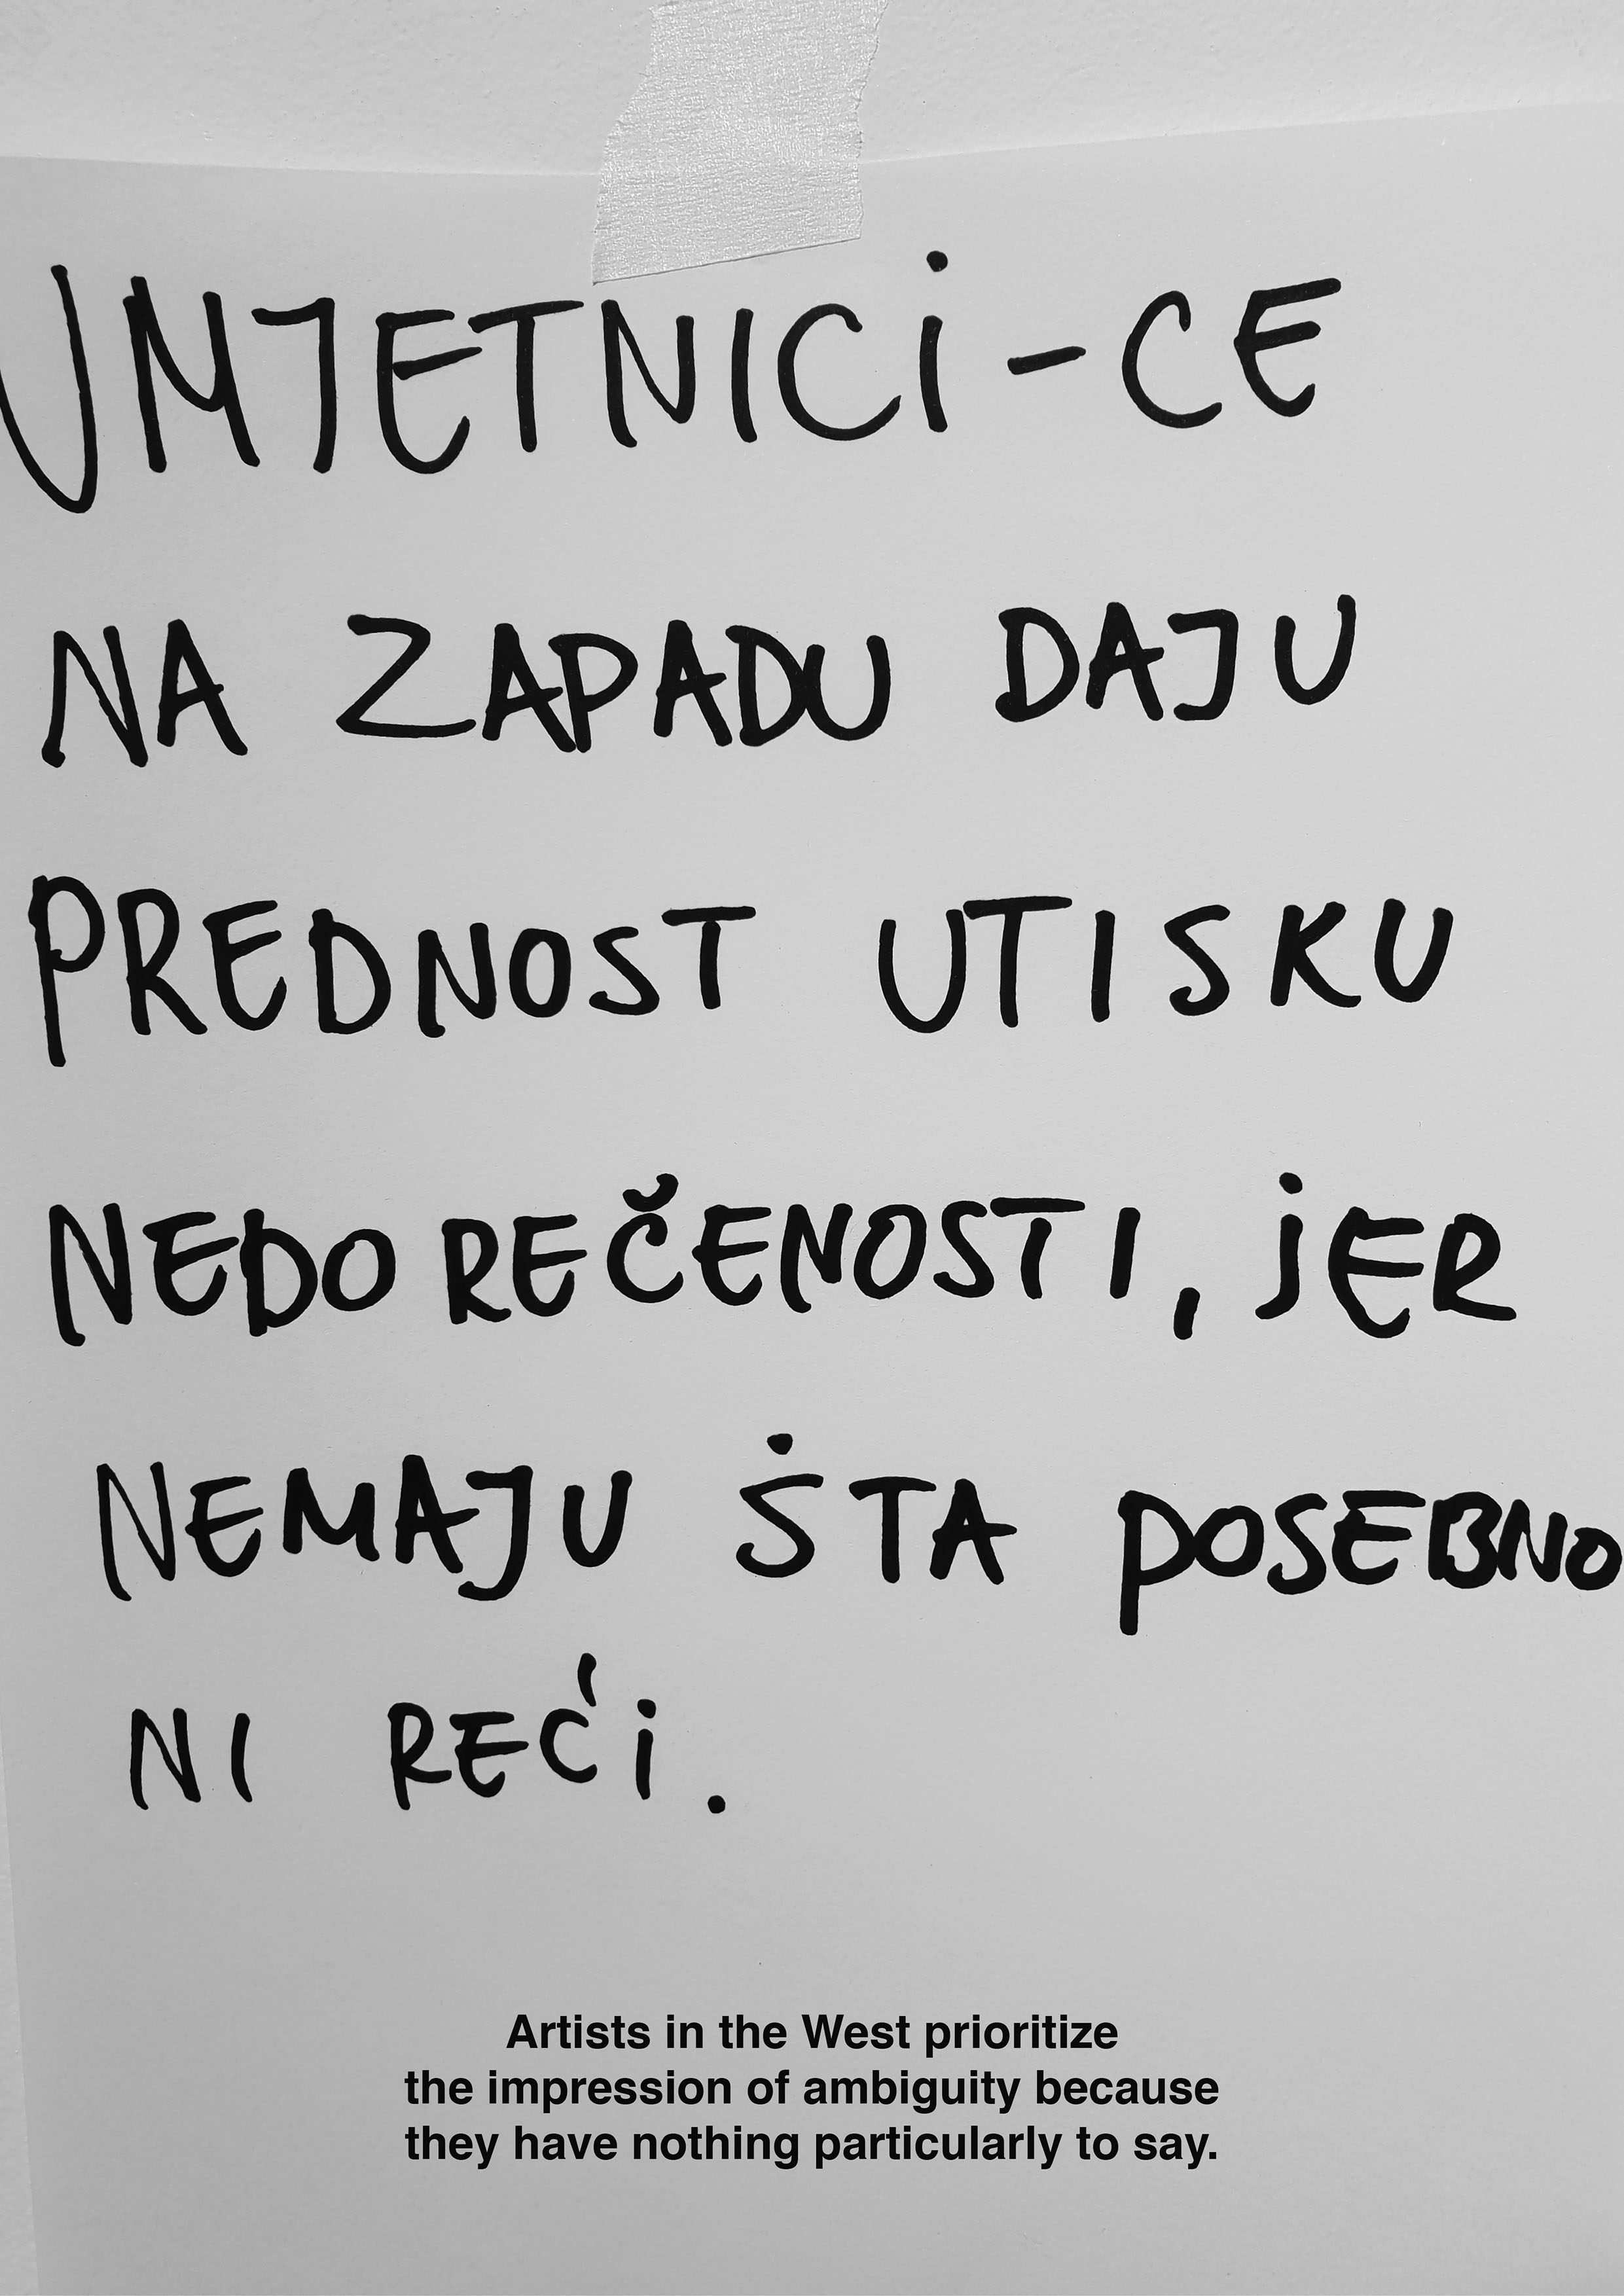 UMJETNICI-CE
NA ZAPADU DAJU
PREDNOST UTISKU
NEDOREČENOSTI, JER
NEMAJU ŠTA POSEBNO
NI REĆI.
Artists in the West prioritize
the impression of ambiguity because
they have nothing particularly to say.